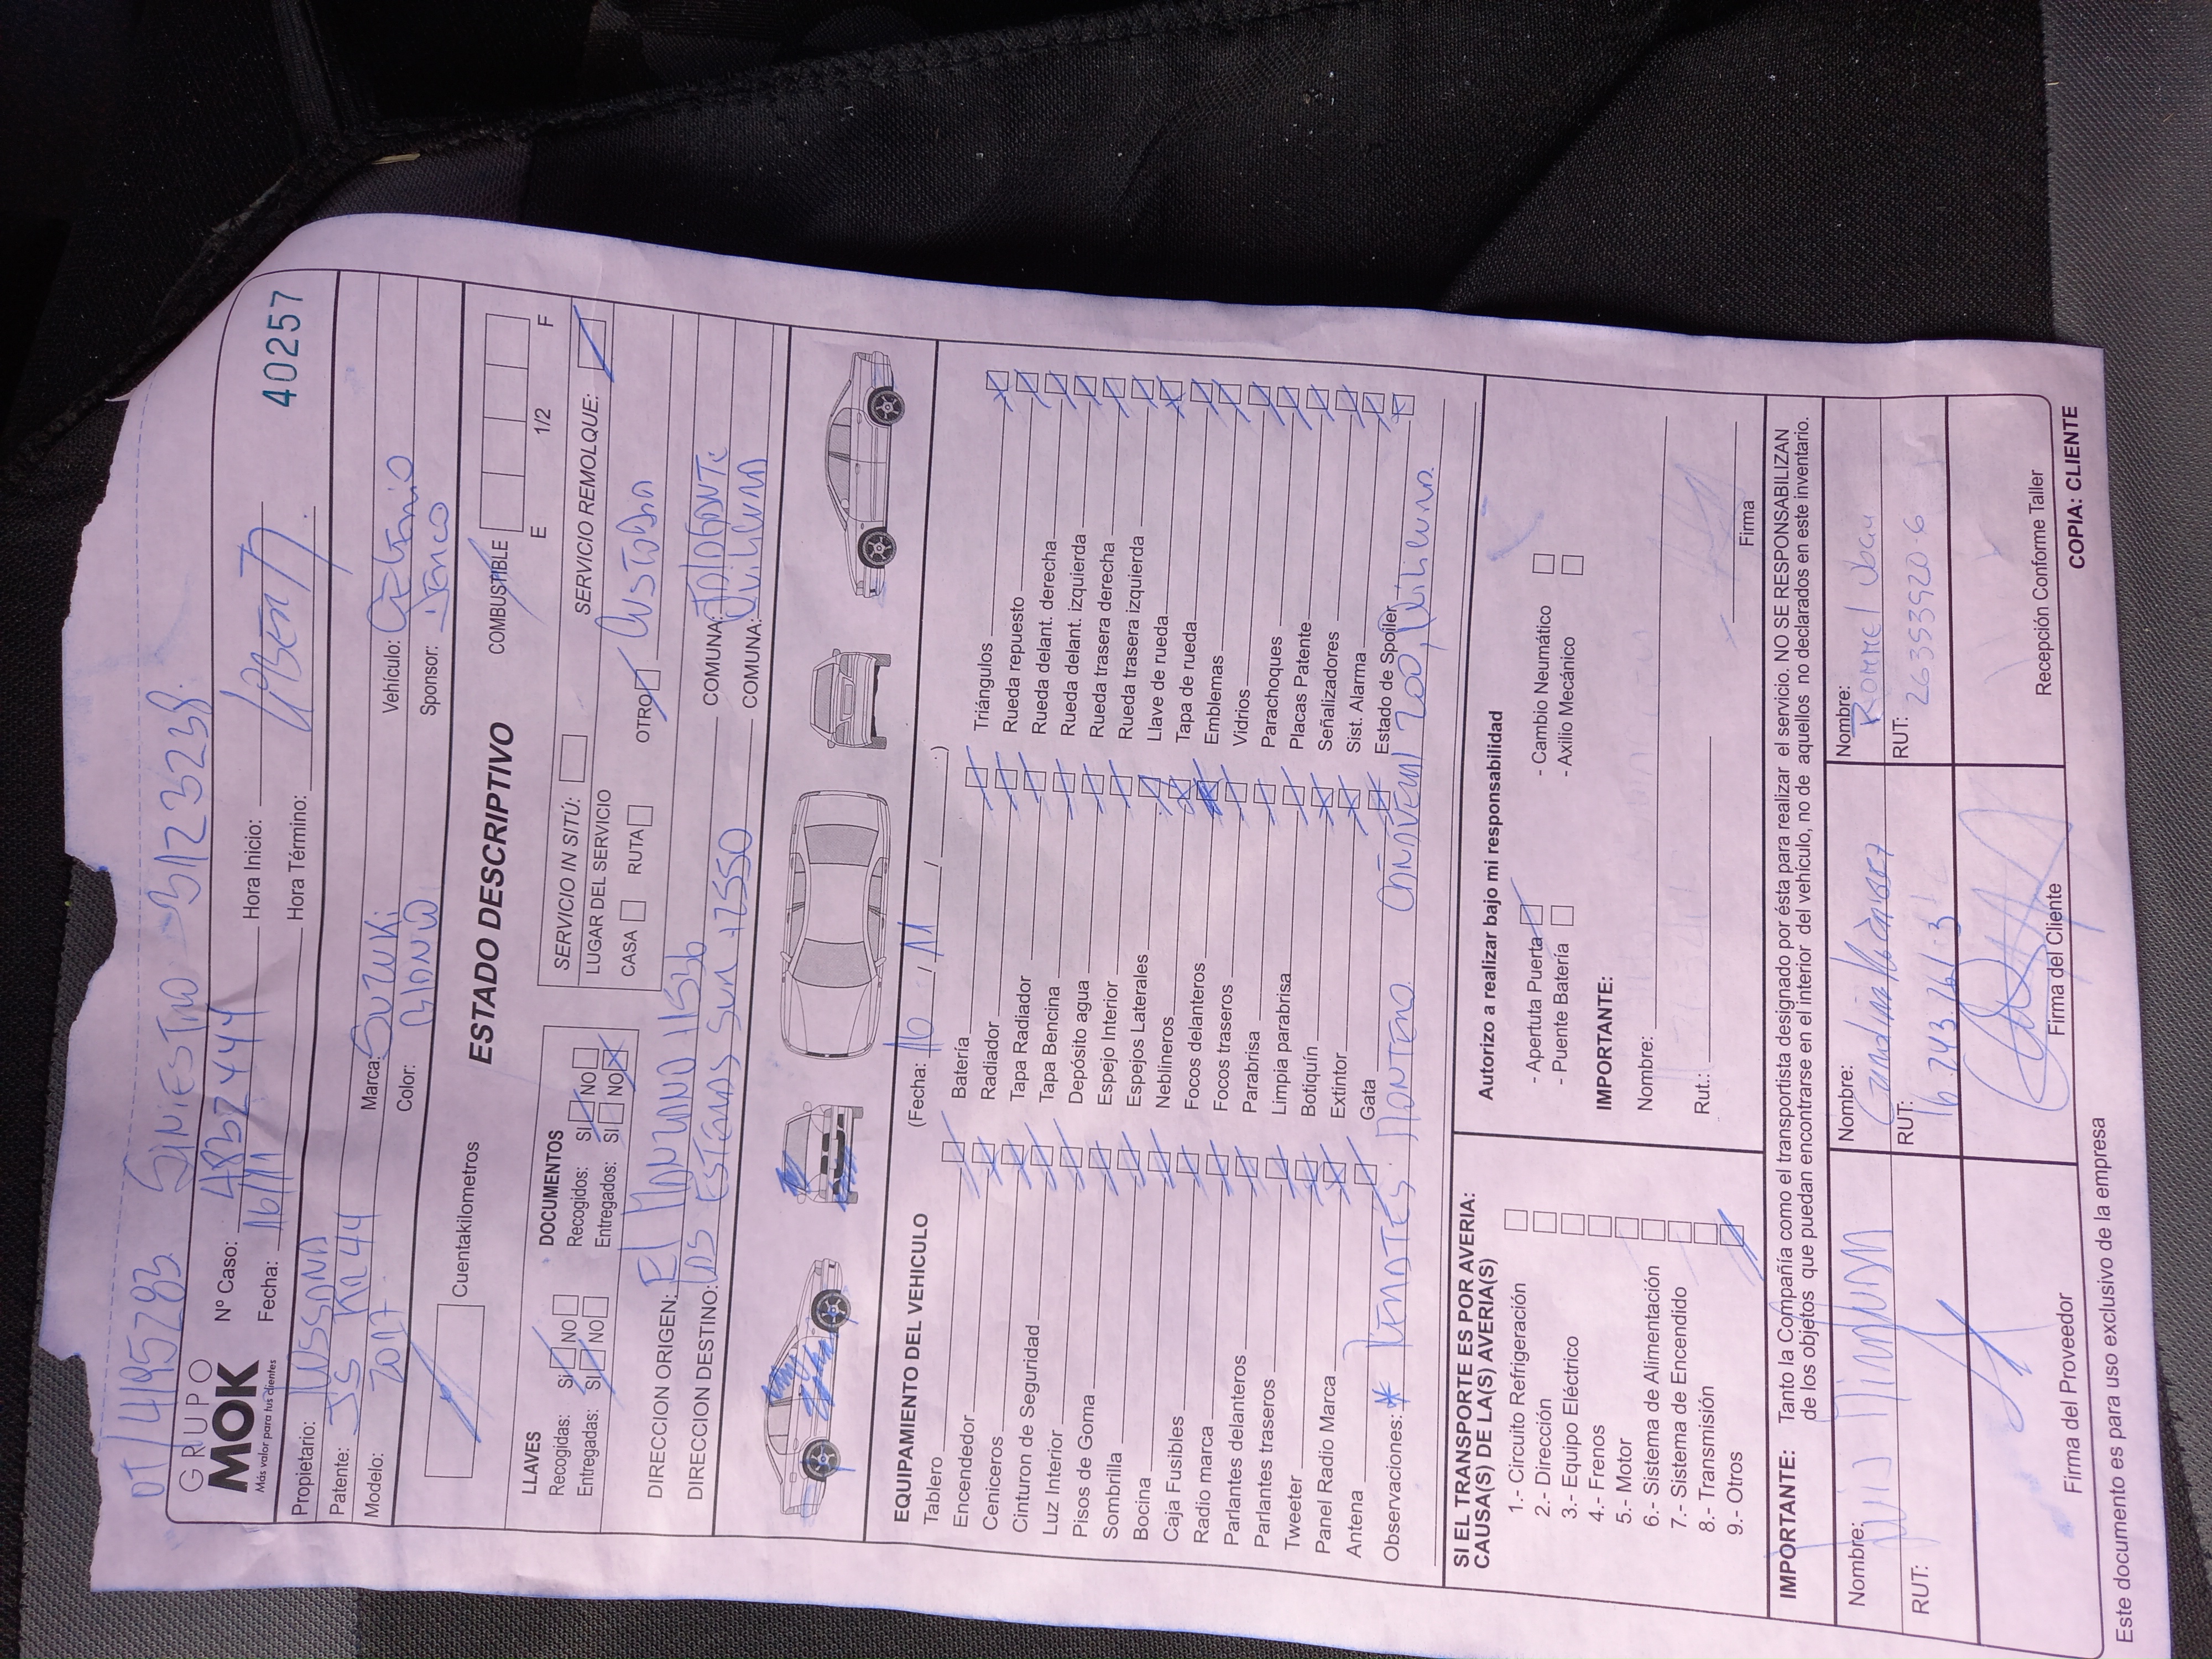 OT/4195283 SINIESTRO 5123238.
GRUPO
MOK
Más valor para tus clientes
Nº Caso: 4832444
Hora Inicio:
40257
Fecha: 16/11
Hora Término:
Propietario:
Patente: JS KR 44
Marca: SUZUKI
Vehículo:
Modelo: 2017
Color:
Sponsor:
Cuentakilometros
ESTADO DESCRIPTIVO
COMBUSTIBLE
E 1/2 F
LLAVES
Recogidas: SI NO
Entregadas: SI NO
DOCUMENTOS
Recogidos: SI NO
Entregados: SI NO
SERVICIO IN SITÚ:
LUGAR DEL SERVICIO
CASA RUTA
SERVICIO REMOLQUE:
OTRO CUSTODIA
DIRECCION ORIGEN: El MANZANO 11536
COMUNA: TALAGANTE
DIRECCION DESTINO: LAS ESTERAS SUR #2550
COMUNA: Quilicura
EQUIPAMIENTO DEL VEHICULO
(Fecha: 16 / 11 / )
Tablero
Encendedor
Ceniceros
Cinturon de Seguridad
Luz Interior
Pisos de Goma
Sombrilla
Bocina
Caja Fusibles
Radio marca
Parlantes delanteros
Parlantes traseros
Tweeter
Panel Radio Marca
Antena
Batería
Radiador
Tapa Radiador
Tapa Bencina
Depósito agua
Espejo Interior
Espejos Laterales
Neblineros
Focos delanteros
Focos traseros
Parabrisa
Limpia parabrisa
Botiquín
Extintor
Gata
Triángulos
Rueda repuesto
Rueda delant. derecha
Rueda delant. izquierda
Rueda trasera derecha
Rueda trasera izquierda
Llave de rueda
Tapa de rueda
Emblemas
Vidrios
Parachoques
Placas Patente
Señalizadores
Sist. Alarma
Estado de Spoiler
Observaciones: * REMATES: MONTERO Cañaveral 200, Quilicura.
SI EL TRANSPORTE ES POR AVERIA:
CAUSA(S) DE LA(S) AVERIA(S)
1.- Circuito Refrigeración
2.- Dirección
3.- Equipo Eléctrico
4.- Frenos
5.- Motor
6.- Sistema de Alimentación
7.- Sistema de Encendido
8.- Transmisión
9.- Otros
Autorizo a realizar bajo mi responsabilidad
- Apertuta Puerta
- Cambio Neumático
- Puente Batería
- Axilio Mecánico
IMPORTANTE:
Nombre:
Rut.:
Firma
IMPORTANTE: Tanto la Compañía como el transportista designado por ésta para realizar el servicio. NO SE RESPONSABILIZAN
de los objetos que puedan encontrarse en el interior del vehículo, no de aquellos no declarados en este inventario.
Nombre: Luis
RUT:
Firma del Proveedor
Nombre:
RUT: 16.243.261-3
Firma del Cliente
Nombre: Rommel
RUT: 26353920-6
Recepción Conforme Taller
Este documento es para uso exclusivo de la empresa
COPIA: CLIENTE